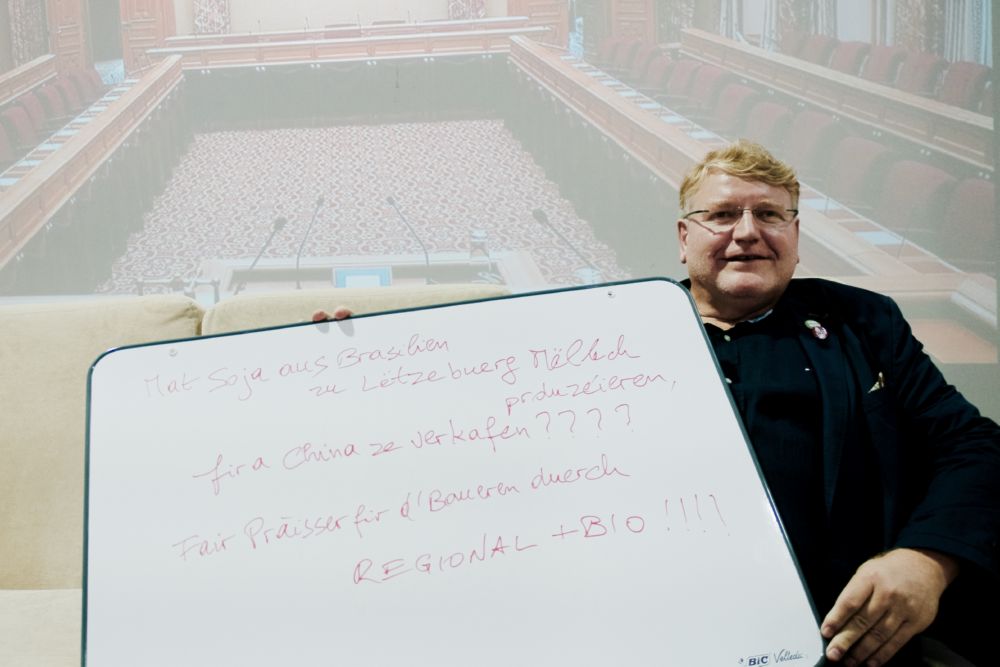 Mat Soja aus Brasilien
zu Lëtzebuerg Mëllech
produzéieren,
fir a China ze verkafen????
Fair Präisser fir d'Baueren duerch
REGIONAL + BIO!!!!
BIC Velleda